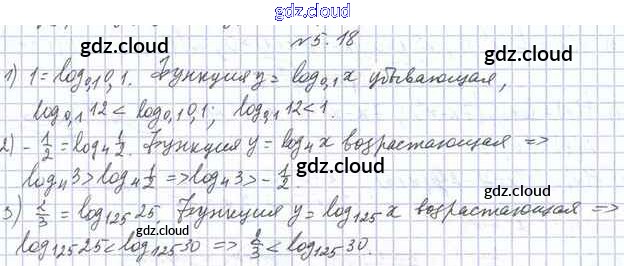 gdz.cloud
gdz.cloud
№5.18
gdz.cloud
1) 1 = log₀,₁0,1. Функция y = log₀,₁x убывающая,
log₀,₁12 < log₀,₁0,1; log₀,₁12 < 1.
gdz.cloud
2) -1/2 = log₄1/2. Функция y = log₄x возрастающая =>
gdz.cloud
log₄3 > log₄1/2 => log₄3 > -1/2
gdz.cloud
3) 2/3 = log₁₂₅25. Функция y = log₁₂₅x возрастающая =>
log₁₂₅25 < log₁₂₅30 => 2/3 < log₁₂₅30.
gdz.cloud